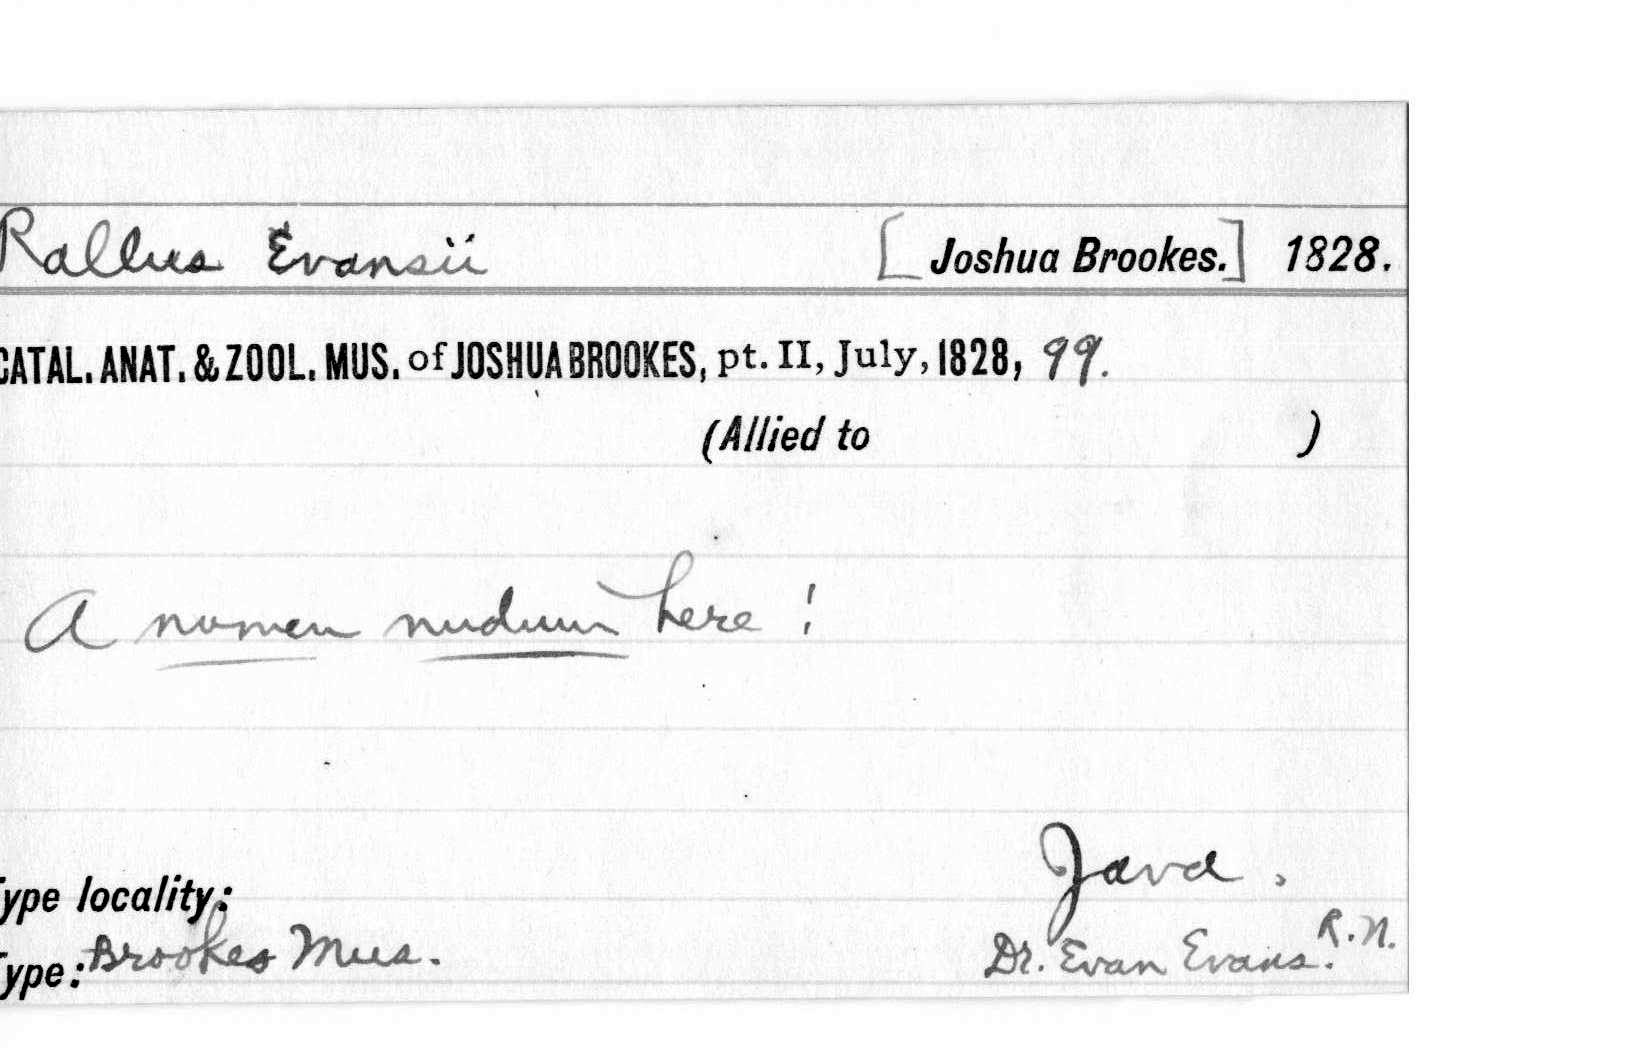 Rallus Evansii [Joshua Brookes.] 1828.
CATAL. ANAT. & ZOOL. MUS. of JOSHUA BROOKES, pt. II, July, 1828, 99.
(Allied to )
A nomen nudum here!
Java.
Type locality:
Type: Brookes Mus. Dr. Evan Evans. R.N.